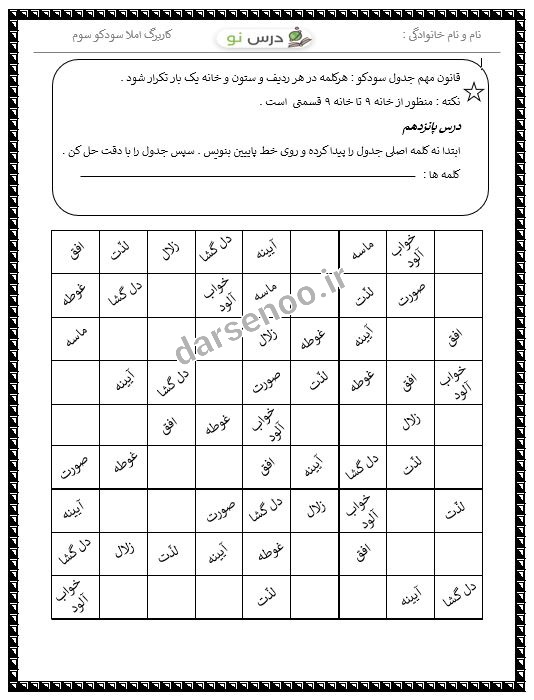 نام و نام خانوادگی : درس نو کاربرگ املا سودکو سوم
قانون مهم جدول سودکو : هرکلمه در هر ردیف و ستون و خانه یک بار تکرار شود .
نکته : منظور از خانه ۹ تا خانه ۹ قسمتی است .
درس پانزدهم
ابتدا نه کلمه اصلی جدول را پیدا کرده و روی خط پایین بنویس . سپس جدول را با دقت حل کن .
کلمه ها :
خواب آلود ماسه آیینه دل گشا زلال لذّت افق
صورت لذّت ماسه خواب آلود دل گشا غوطه
افق آیینه غوطه زلال ماسه
خواب آلود افق غوطه لذّت صورت دل گشا آیینه
زلال خواب آلود غوطه افق
لذّت دل گشا آیینه افق غوطه صورت
لذّت خواب آلود زلال دل گشا صورت آیینه
افق غوطه آیینه لذّت زلال دل گشا
دل گشا آیینه لذّت خواب آلود
darsenoo.ir